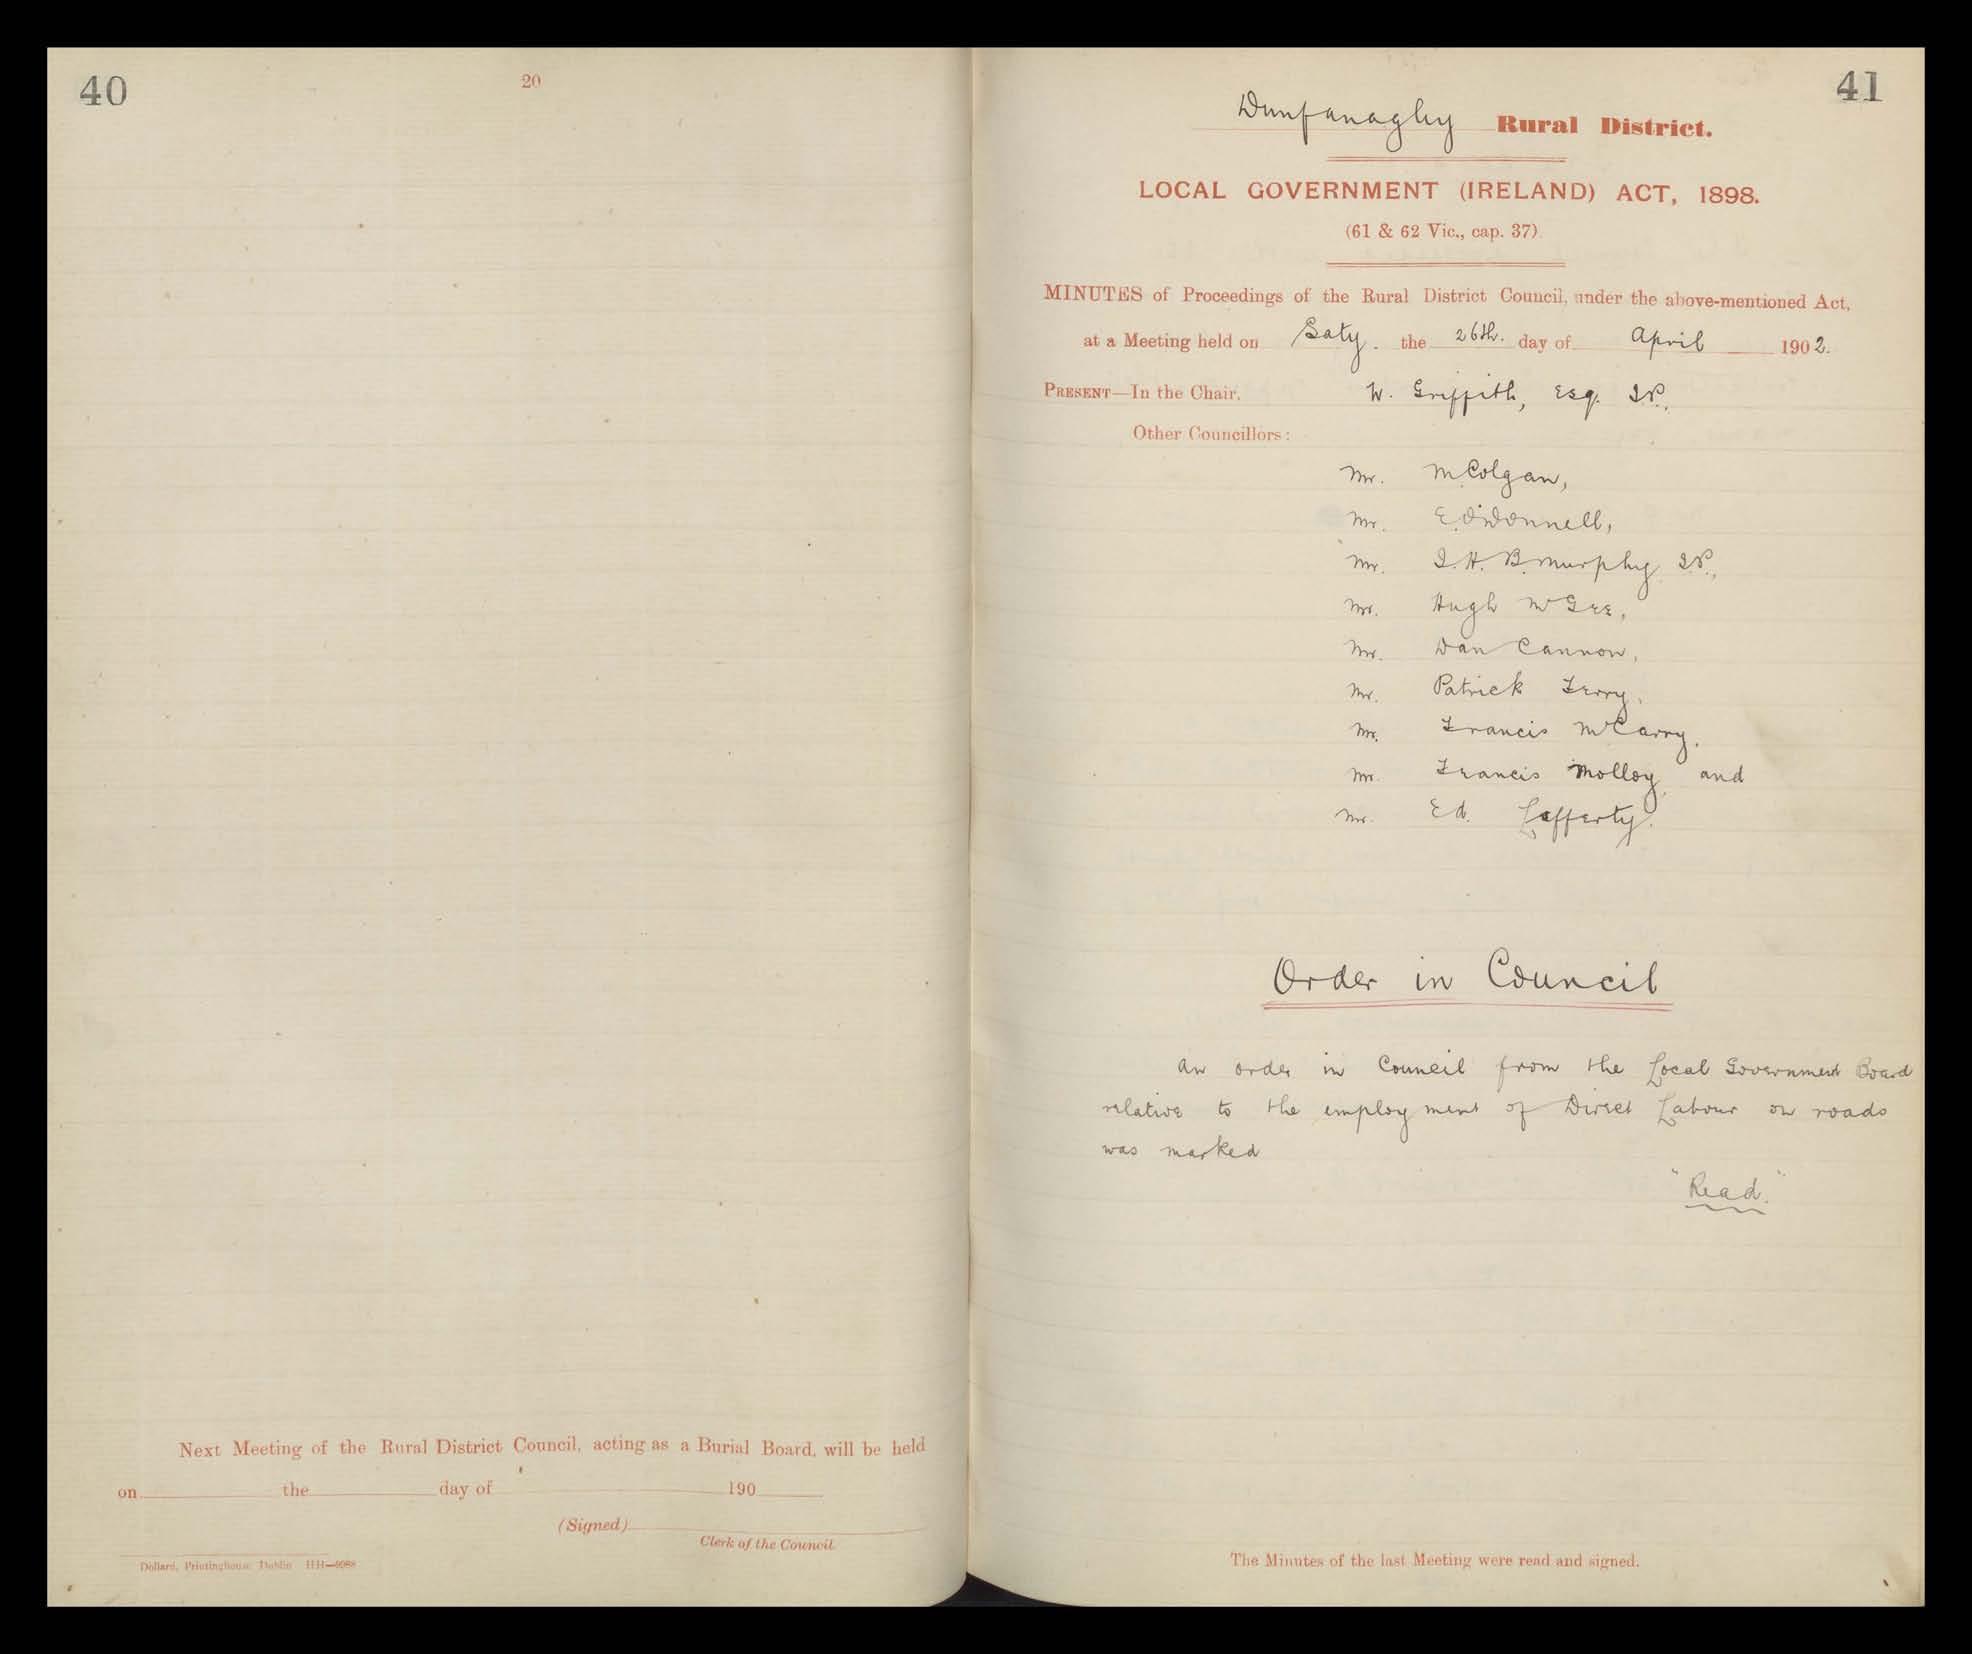 40
20
Next Meeting of the Rural District Council, acting as a Burial Board, will be held
on the day of 190
(Signed)
Clerk of the Council.
Dollard, Printinghouse Dublin
41
Dunfanaghy Rural District.
LOCAL GOVERNMENT (IRELAND) ACT, 1898.
(61 & 62 Vic., cap. 37)
MINUTES of Proceedings of the Rural District Council, under the above-mentioned Act,
at a Meeting held on Saty. the 26th. day of April 1902.
PRESENT—In the Chair, W. Griffith, Esq. J.P.,
Other Councillors:
Mr. McColgan,
Mr. E. O'Donnell,
Mr. J. H. B. Murphy J.P.,
Mr. Hugh McGee,
Mr. Dan Cannon,
Mr. Patrick Ferry,
Mr. Francis McCarry,
Mr. Francis Molloy, and
Mr. Ed. Lafferty.
Order in Council
An order in Council from the Local Government Board
relative to the employment of Direct Labour on roads
was marked
"Read."
The Minutes of the last Meeting were read and signed.